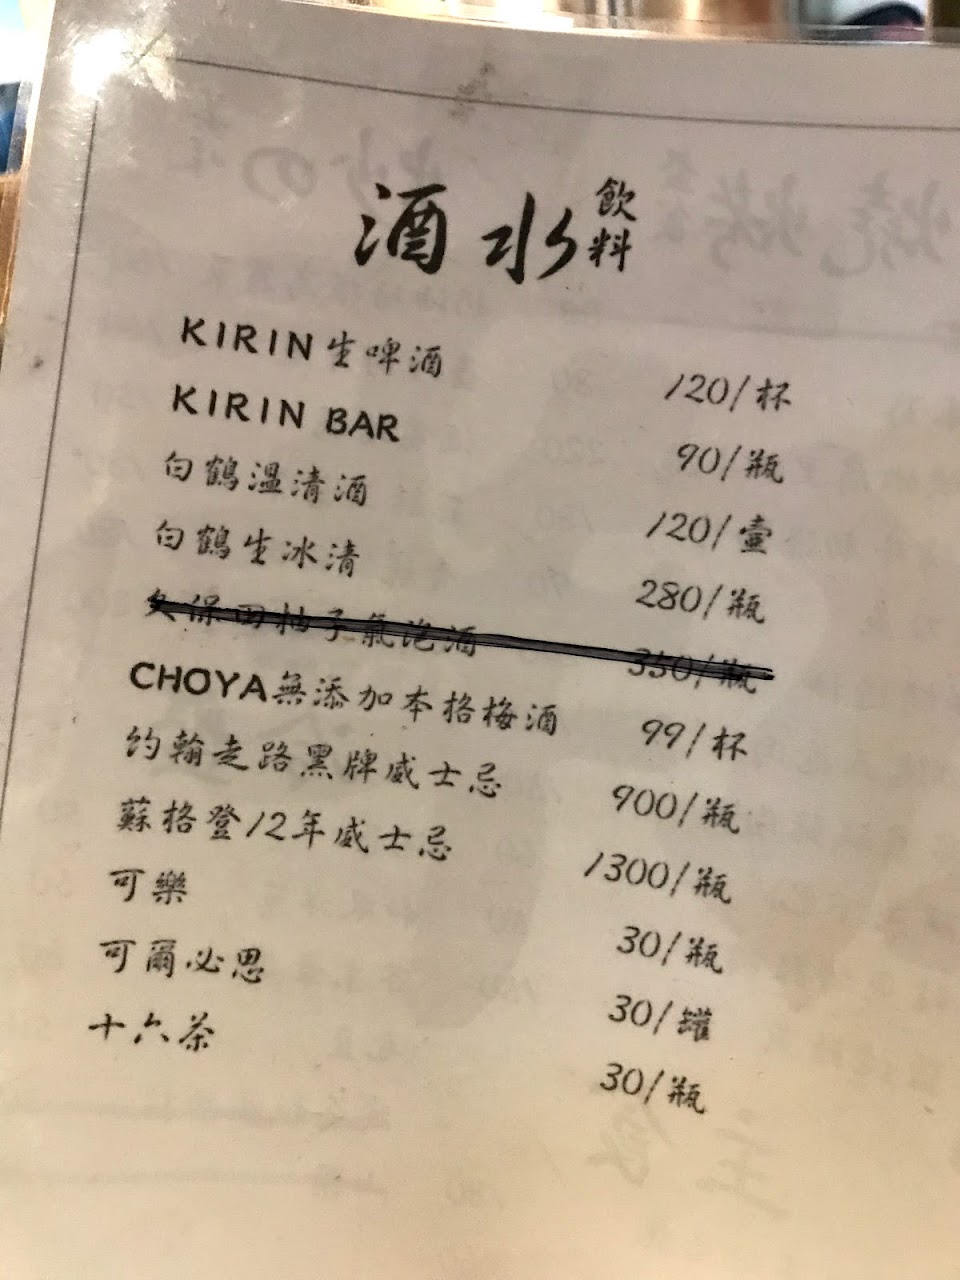 酒水飲料
KIRIN生啤酒 120/杯
KIRIN BAR 90/瓶
白鶴溫清酒 120/壺
白鶴生冰清 280/瓶
久保田柚子氣泡酒 350/瓶
CHOYA無添加本格梅酒 99/杯
約翰走路黑牌威士忌 900/瓶
蘇格登12年威士忌 1300/瓶
可樂 30/瓶
可爾必思 30/罐
十六茶 30/瓶